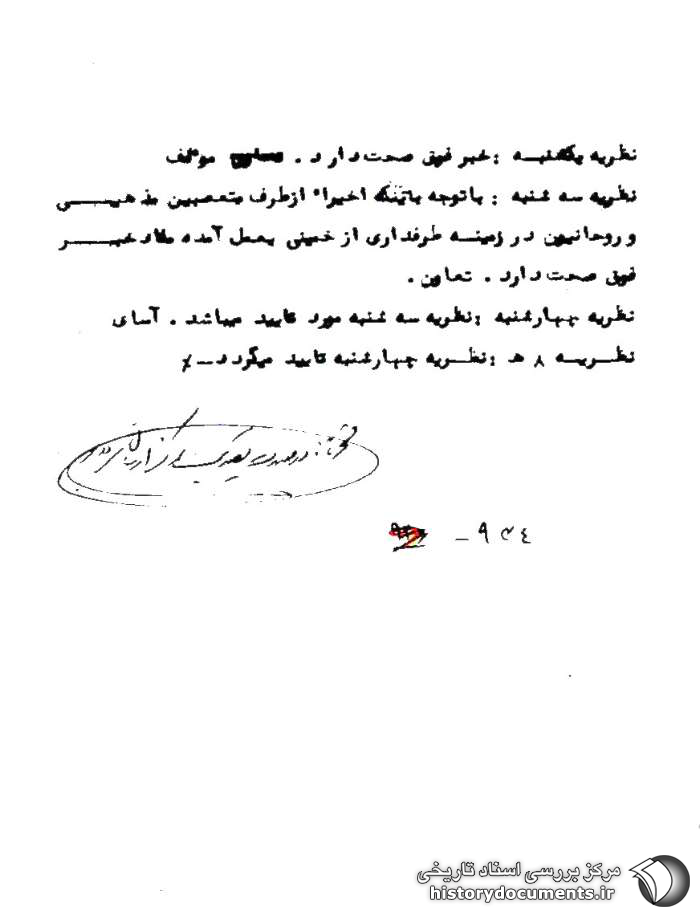 نظریه یکشنبه : خبر فوق صحت دارد . موظف
نظریه سه شنبه : با توجه باینکه اخیرا" از طرف متعصبین مذهبـــی
و روحانیون در زمینــه طرفداری از خمینی بعمل آمده مفاد خبــر
فوق صحت دارد . تعاون .
نظریه چهارشنبه : نظریه سه شنبه مورد تایید میباشد . آسای
نظریــه ۸ هـ : نظــریه چهارشنبه تایید میگردد ــ
در صورت
۹۳۴ –
مرکز بررسی اسناد تاریخی
historydocuments.ir